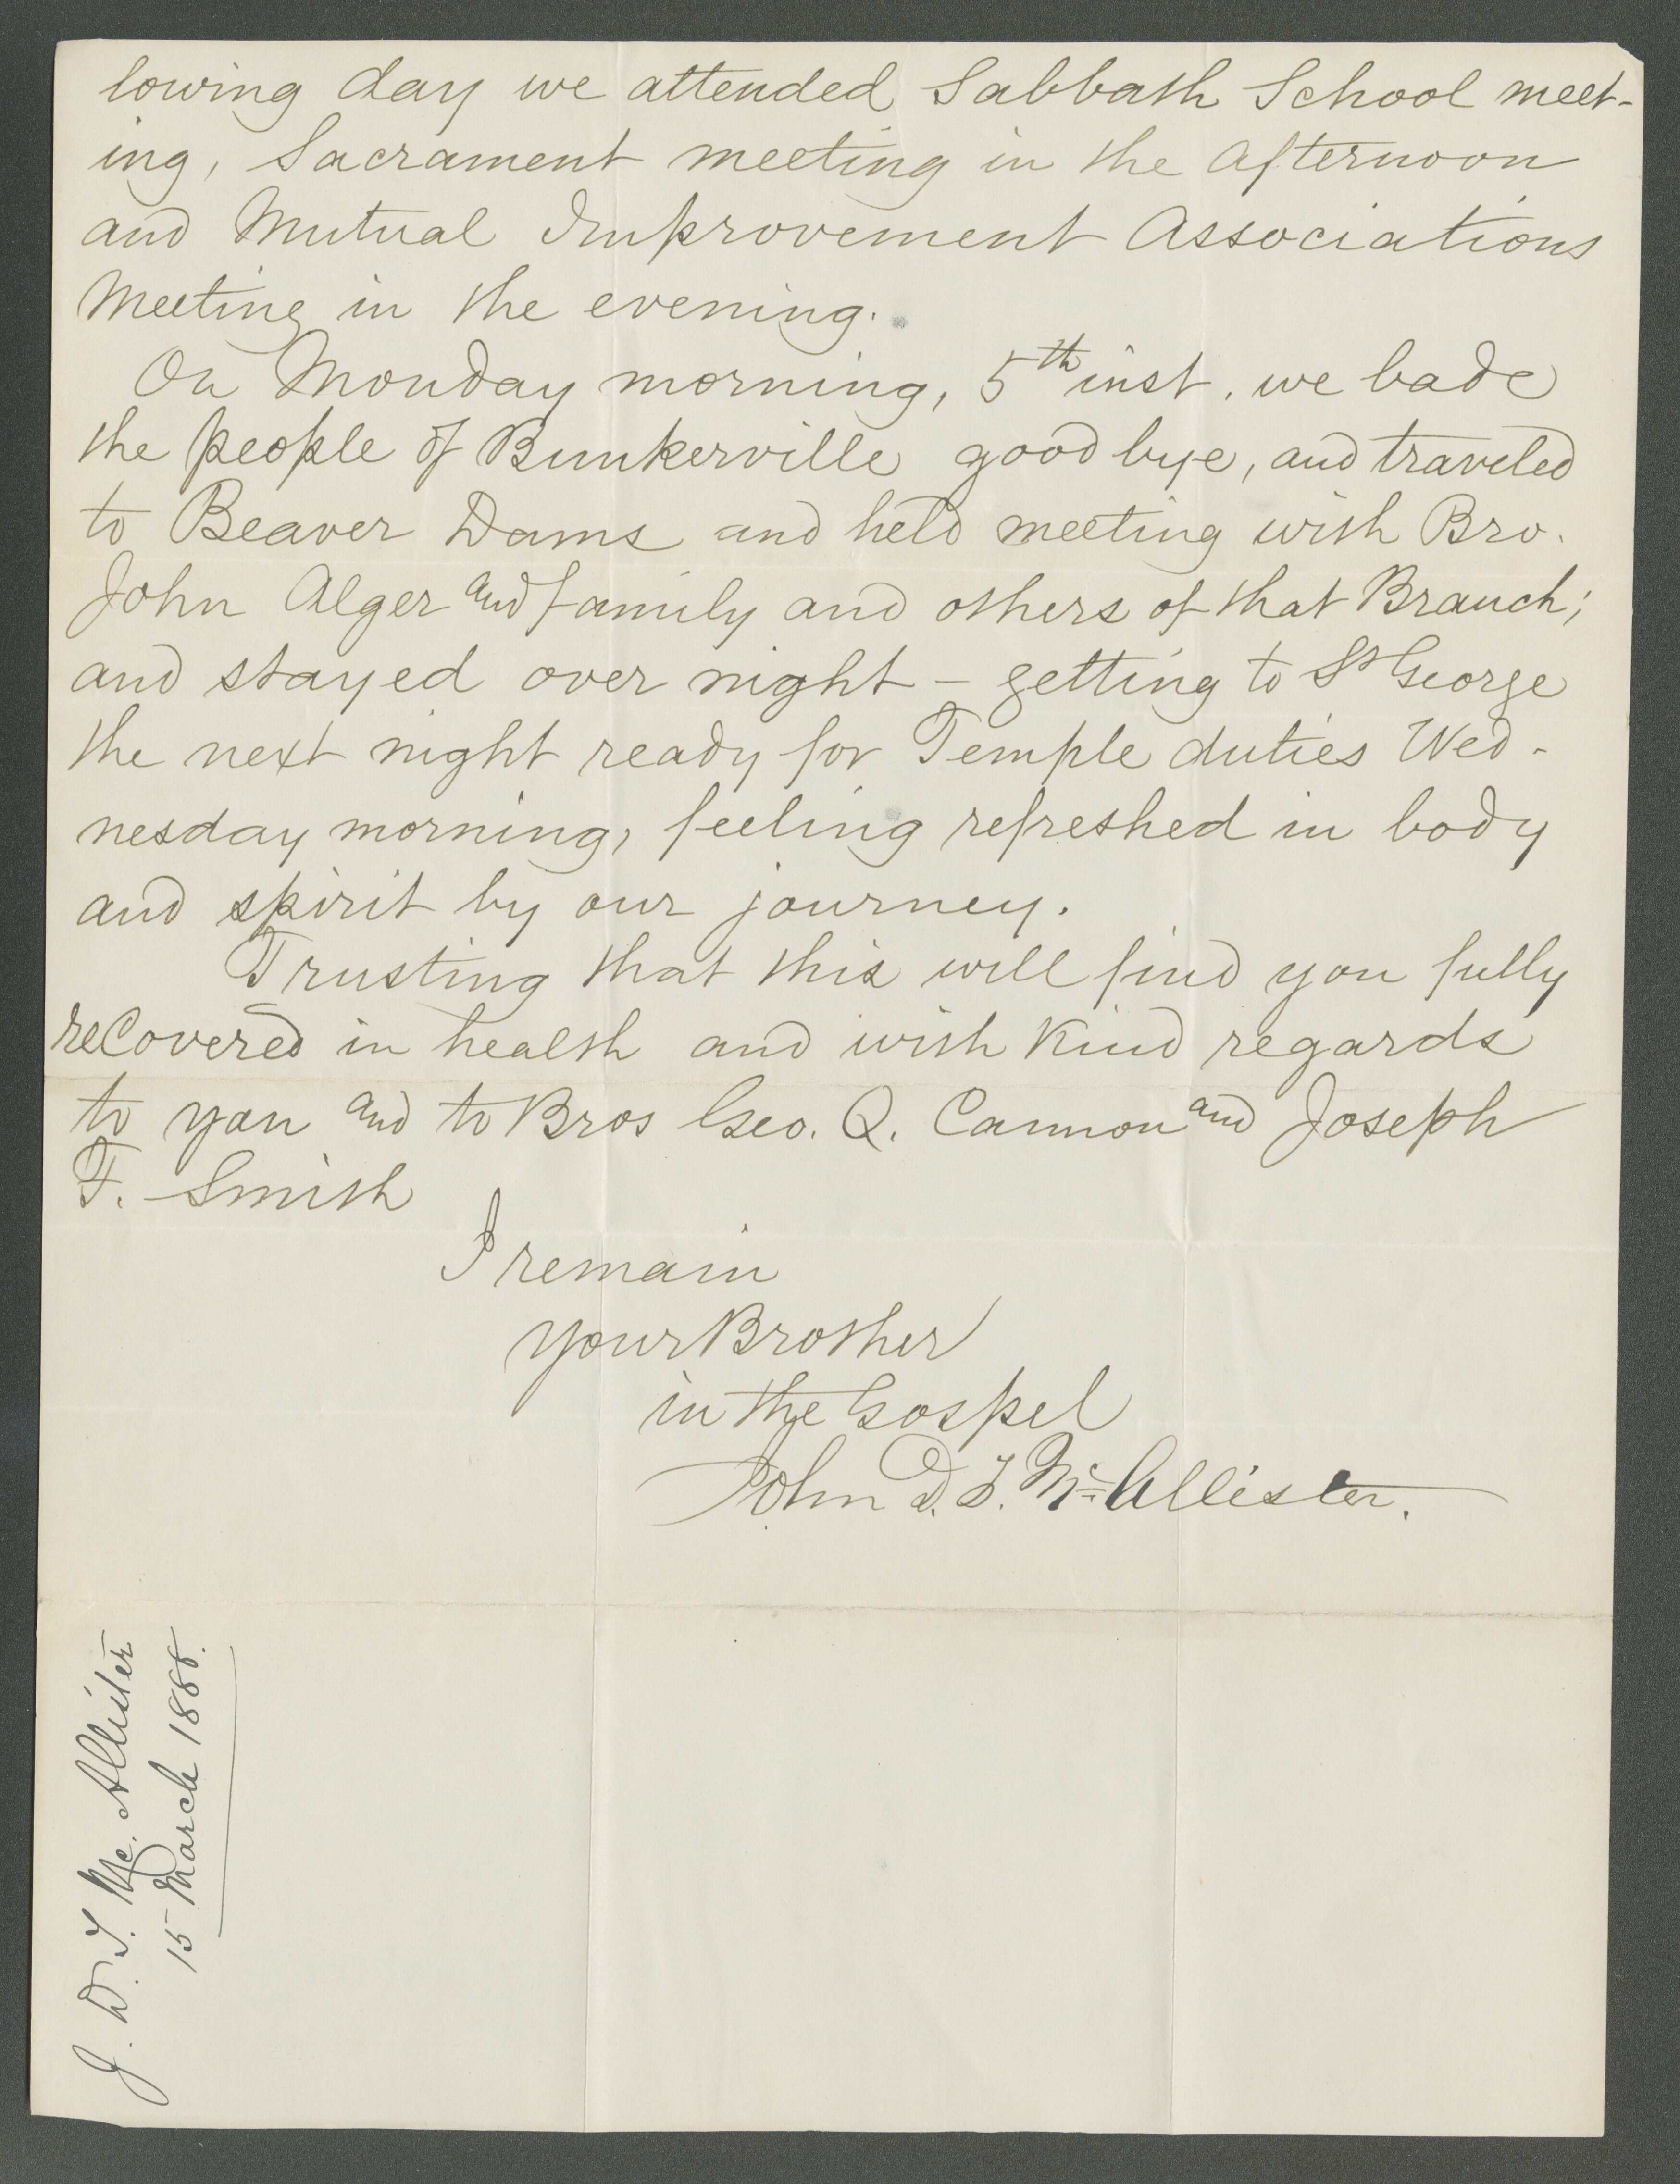 lowing day we attended Sabbath School meet-
ing, Sacrament meeting in the afternoon
and Mutual Improvement Associations
Meeting in the evening.
On Monday morning, 5th inst, we bade
the people of Bunkerville good bye, and traveled
to Beaver Dams and held meeting with Bro.
John Alger and family and others of that Branch;
and stayed over night - getting to St George
the next night ready for Temple duties Wed-
nesday morning, feeling refreshed in body
and spirit by our journey.
Trusting that this will find you fully
recovered in health and with kind regards
to you and to Bros Geo. Q. Cannon and Joseph
F. Smith
I remain
your Brother
in the Gospel
John D. T. McAllister.
J. D. T. Mc. Allister
15 March 1888.